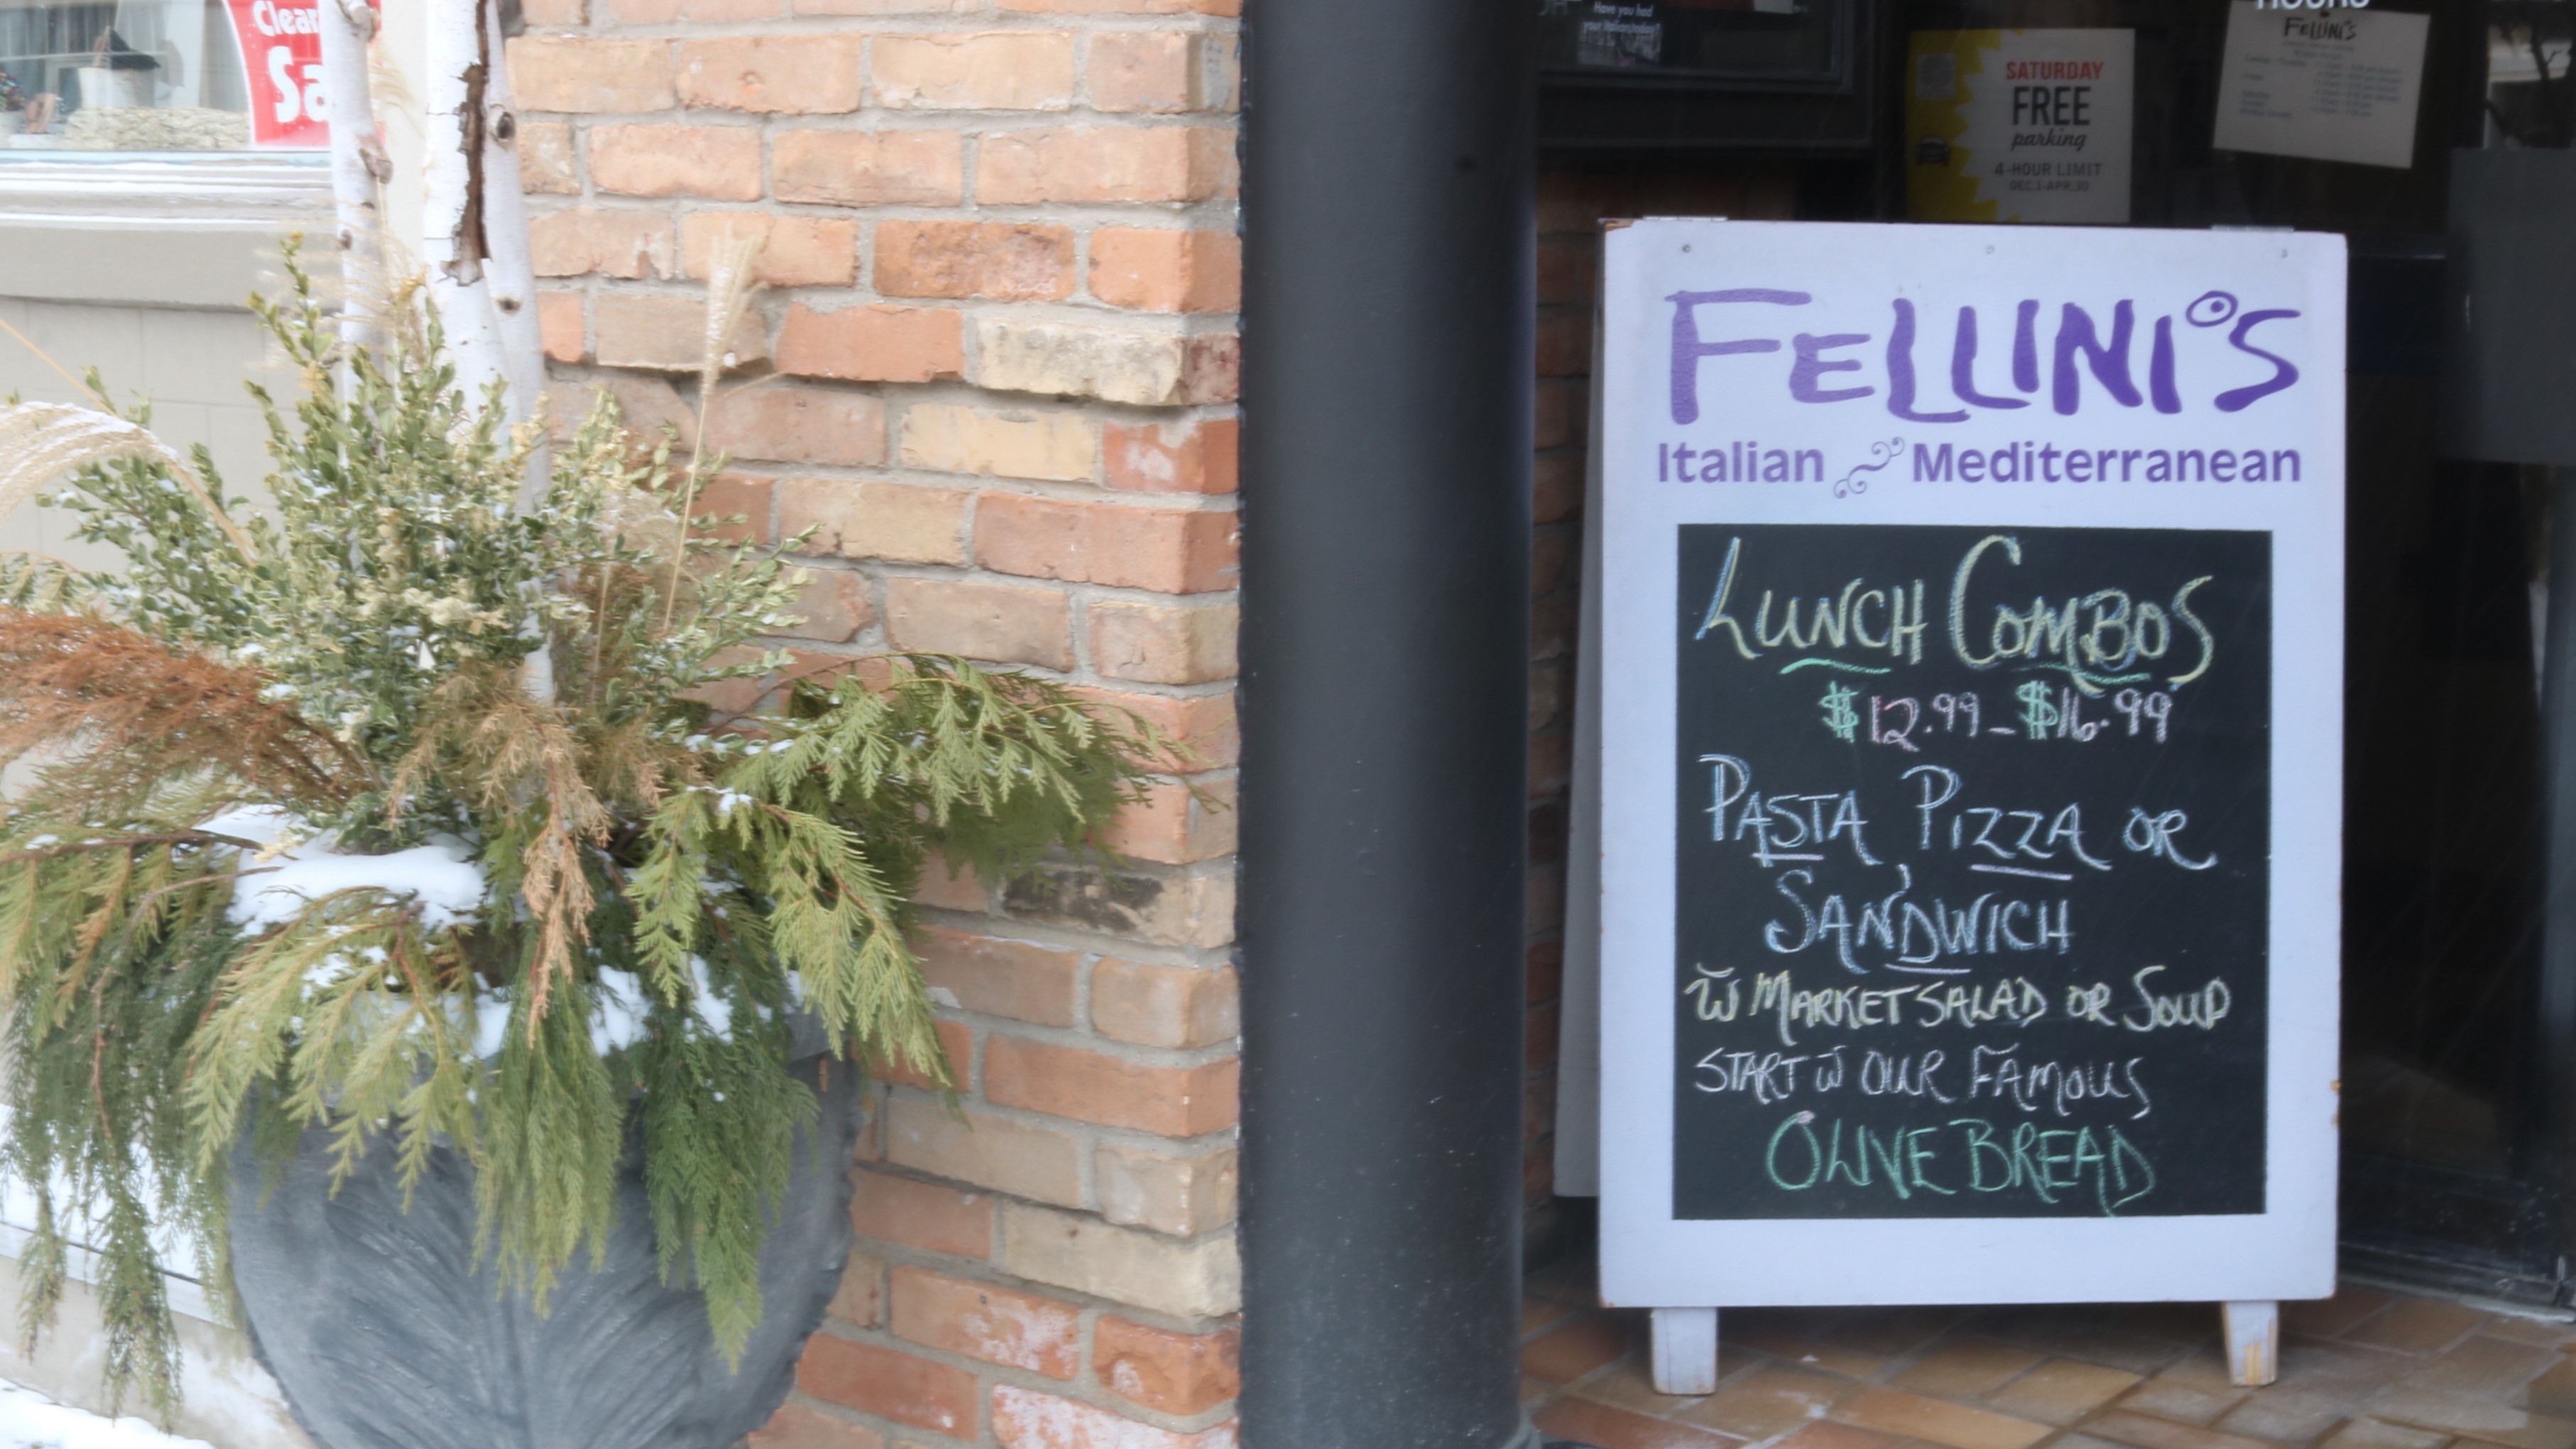 Clear
Sa
Have you had
your Italian today?
SATURDAY
FREE
parking
4-HOUR LIMIT
DEC.1-APR.30
HOURS
FELLINI'S
FELLINI'S
Italian Mediterranean
LUNCH COMBOS
$12.99-$16.99
PASTA, PIZZA OR
SANDWICH
W MARKET SALAD OR SOUP
START W OUR FAMOUS
OLIVE BREAD